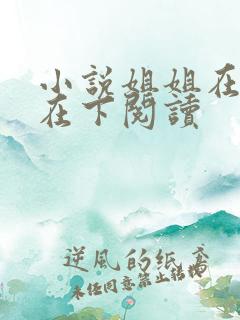 小說姐姐在
在下閱讀
逆風的紙鳶
未经同意禁止转载